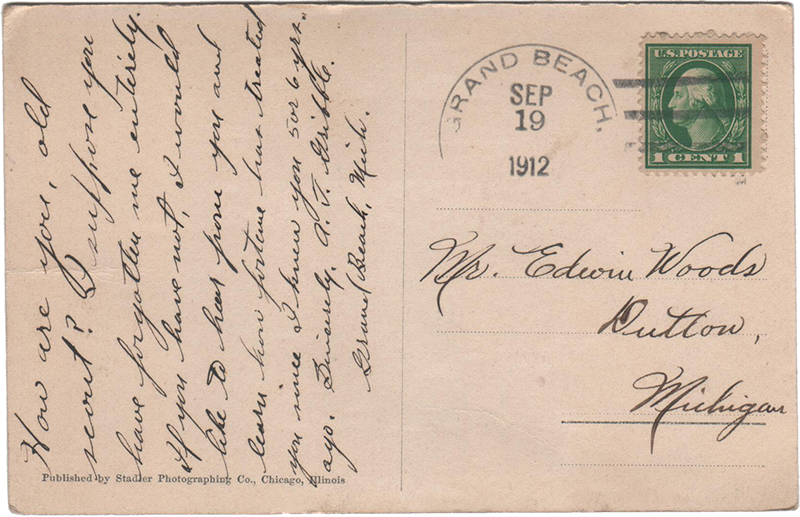 How are you, old
scout? I suppose you
have forgotten me entirely.
If you have not, I would
like to hear from you and
learn how fortune has treated
you since I knew you 5 or 6 yrs.
ago. Sincerely, A. J. Gribble.
Grand Beach, Mich.
Published by Stadler Photographing Co., Chicago, Illinois
GRAND BEACH,
SEP
19
1912
U.S. POSTAGE
1 CENT 1
Mr. Edwin Woods
Dutton,
Michigan